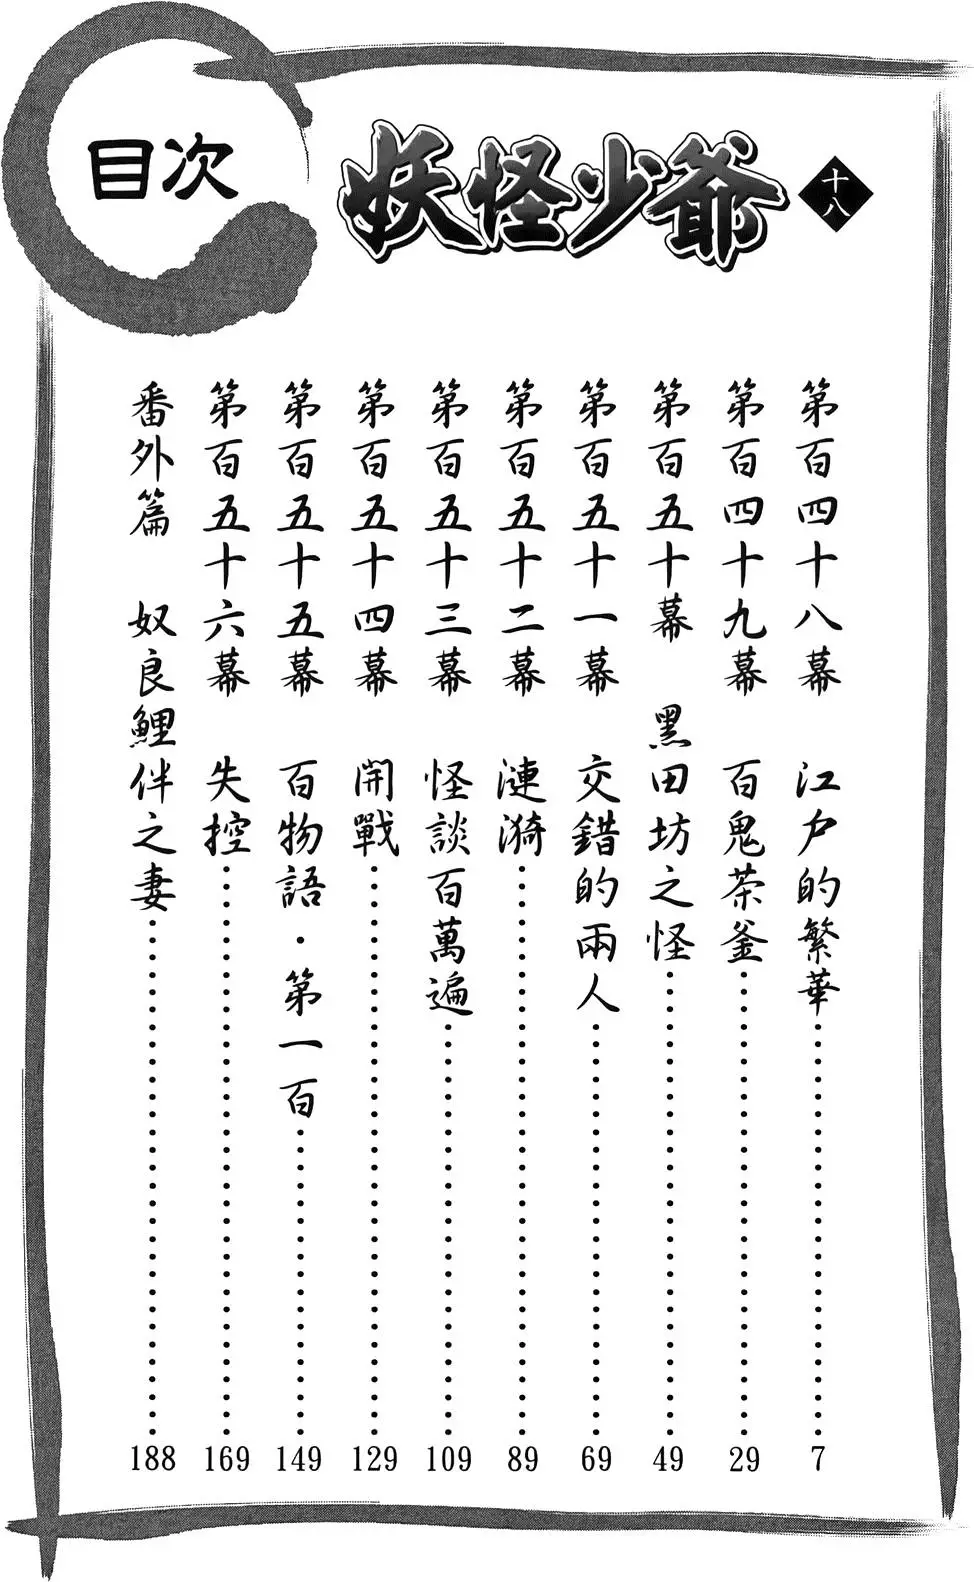 目次
妖怪少爺
十八
第百四十八幕 江戶的繁華 7
第百四十九幕 百鬼茶釜 29
第百五十幕 黑田坊之怪 49
第百五十一幕 交錯的兩人 69
第百五十二幕 漣漪 89
第百五十三幕 怪談百萬遍 109
第百五十四幕 開戰 129
第百五十五幕 百物語・第一百 149
第百五十六幕 失控 169
番外篇 奴良鯉伴之妻 188